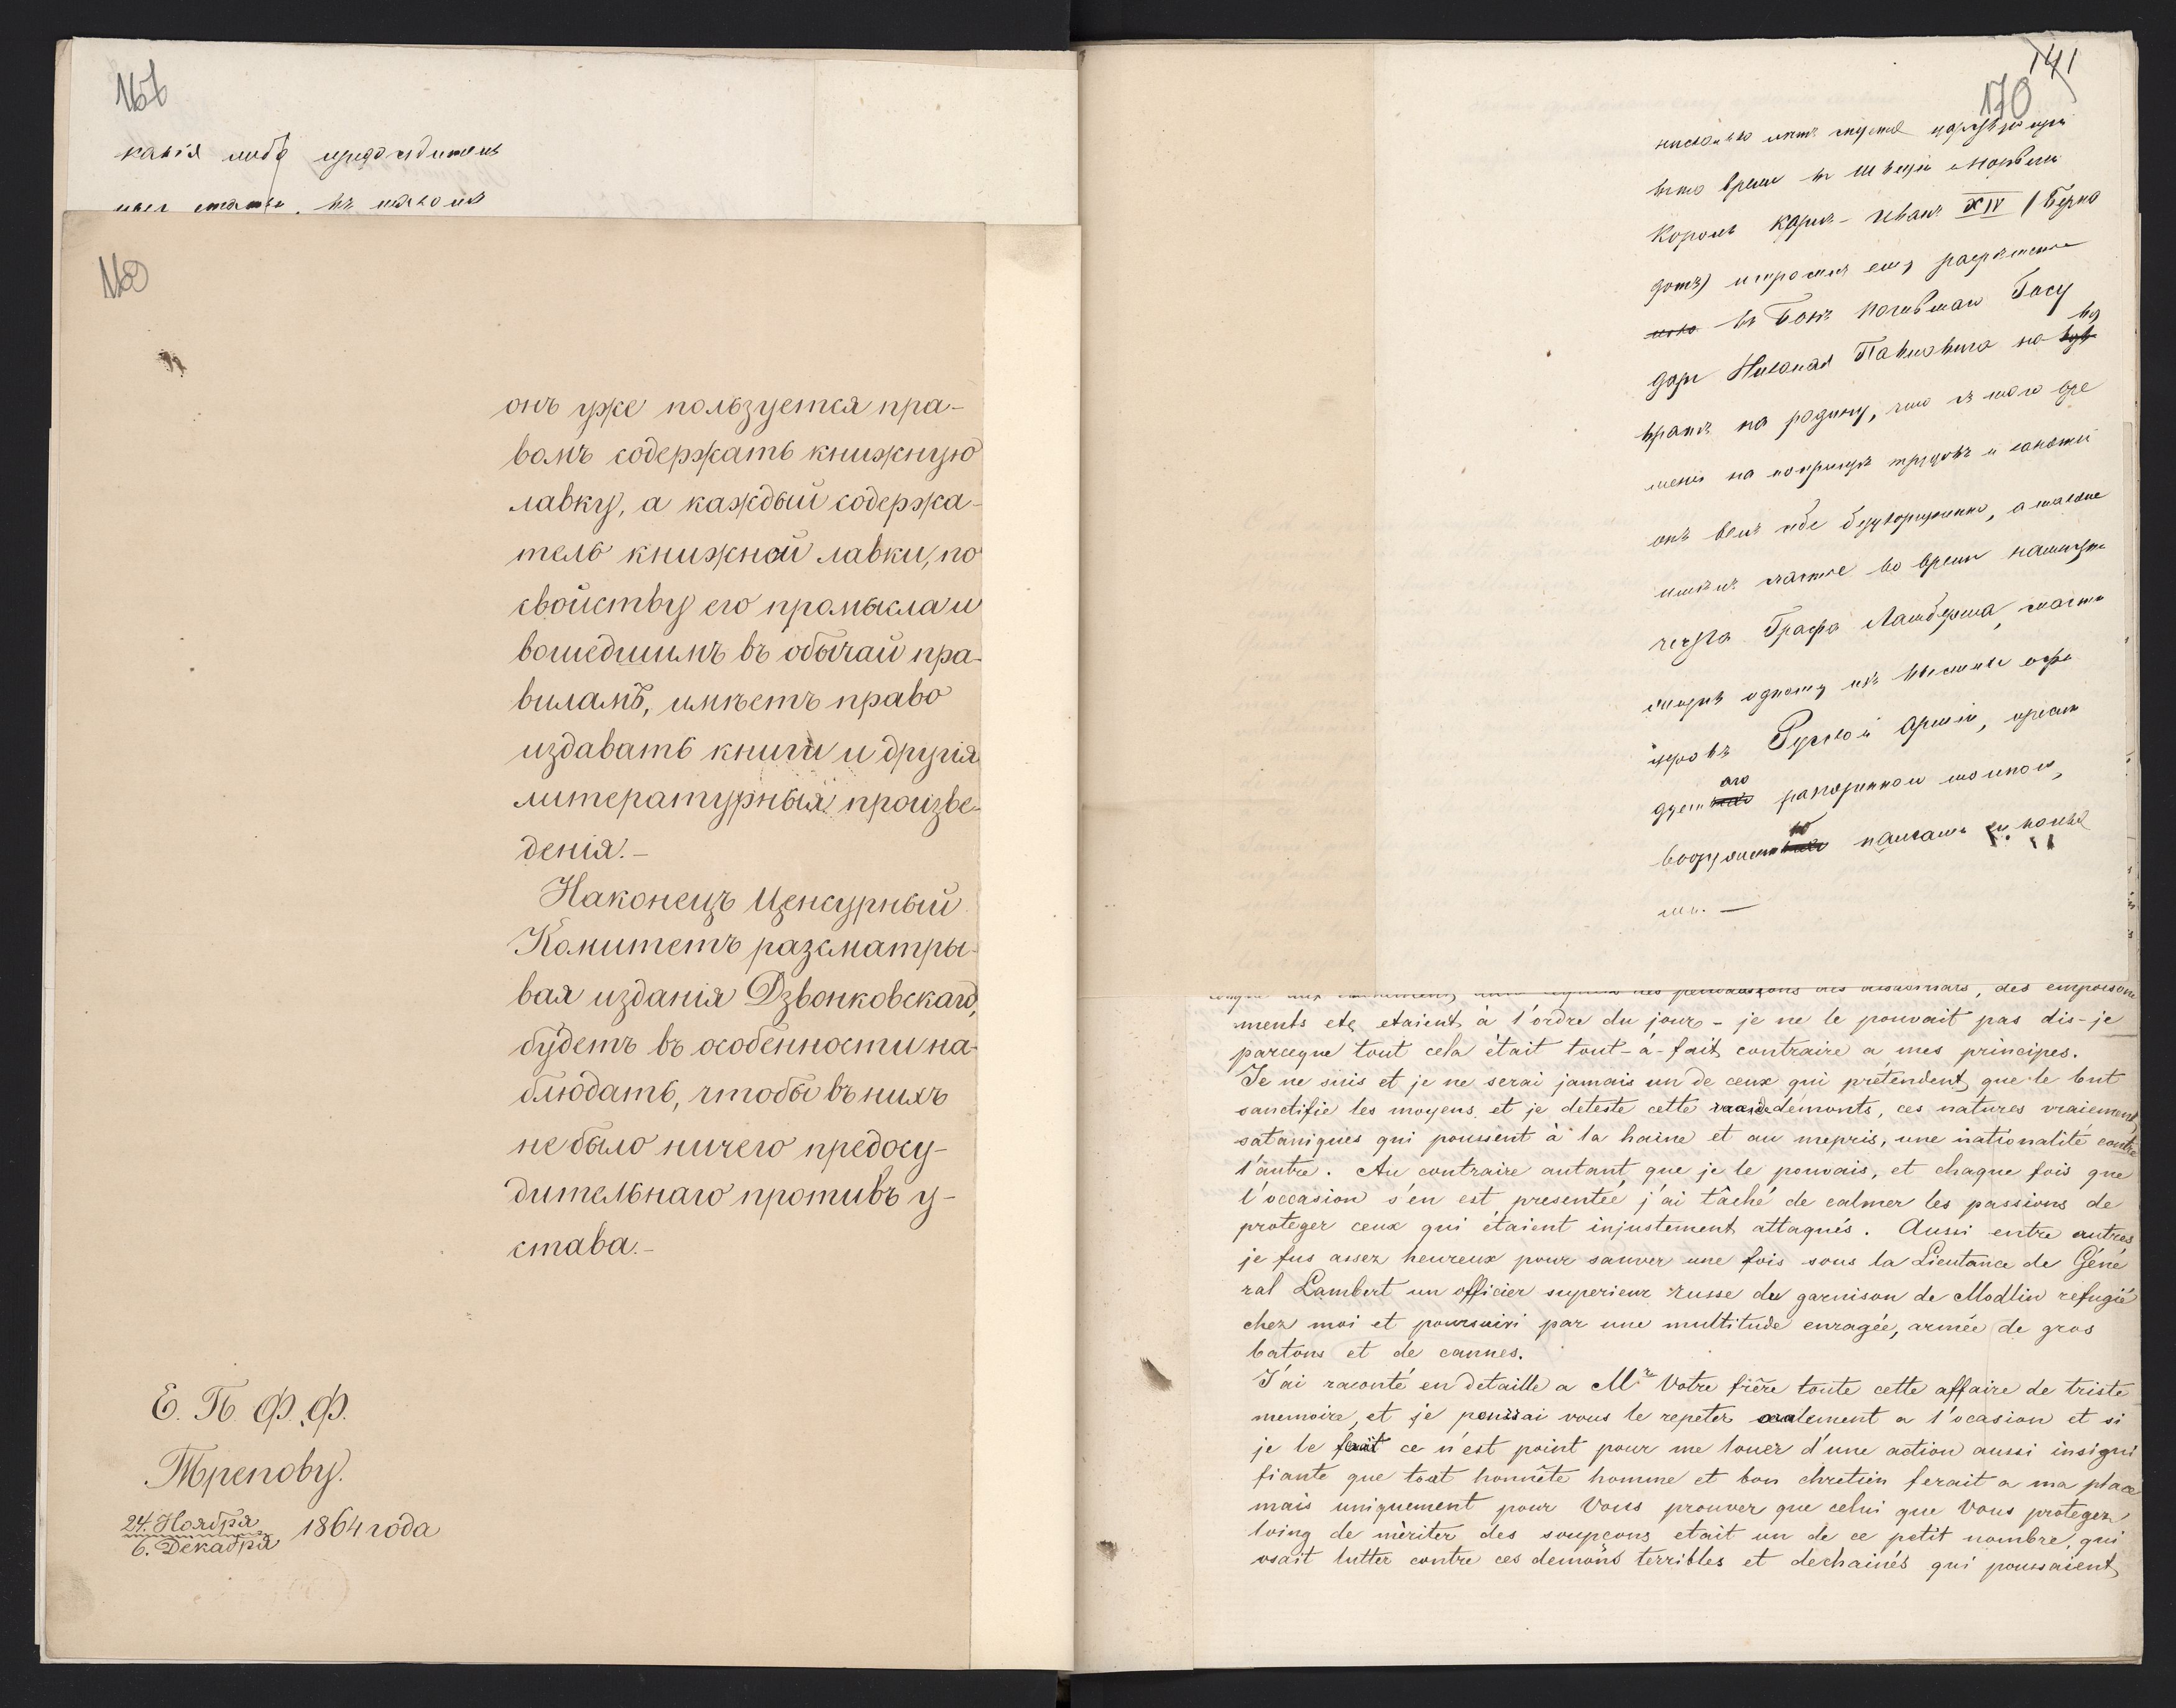 167
какія либо
160
онъ уже пользуется пра-
вомъ содержать книжную
лавку, а каждый содержа-
тель книжной лавки, по
свойству его промысла и
вошедшимъ въ обычай пра-
виламъ, имѣетъ право
издавать книги и другія
литературныя произве-
денія.-
Наконецъ Ценсурный
Комитетъ разсматры-
вая изданія Дзвонковскаго,
будетъ въ особенности на-
блюдать, чтобы въ нихъ
не было ничего предосу-
дительнаго противъ у-
става.-
Е. П. Ф. Ф.
Трепову.
24. Ноября
6. Декабря 1864 года
141
170
нѣсколько лѣтъ спустя
время въ Швеціи и Норвегіи
Король Карлъ-Иванъ XIV (Берна
дотъ) испросилъ ему разрѣшеніе
въ Бозѣ почившаго Госу
даря Николая Павловича на воз
вратъ на родину, что съ того вре
мени на поприщѣ трудовъ и занятій
онъ велъ себя безукоризненно, а также
имѣлъ счастіе во время намѣстни
чества Графа Ламберта, спасти
жизнь одному изъ высшихъ офи
церовъ Русской Арміи,
аго разъяренною толпою,
ю палками и кольями
ми. —
des assassinats, des empoisonne
ments etc etaient à l'ordre du jour - je ne le pouvait pas dis-je
parceque tout cela était tout-à-fait contraire a mes principes.
Je ne suis et je ne serai jamais un de ceux qui prétendent que le but
sanctifie les moyens et je deteste cette démonts, ces natures vraiement
sataniques qui poussent à la haine et au mepris, une nationalité contre
l'autre. Au contraire autant que je le pouvais, et chaque fois que
l'occasion s'en est presentée j'ai tâché de calmer les passions de
proteger ceux qui étaient injustement attaqués. Aussi entre autres
je fus assez heureux pour sauver une fois sous la Lieutance de Géné
ral Lambert un officier superieur russe de garnison de Modlin refugié
chez moi et poursuivi par une multitude enragée, armée de gros
batons et de cannes.
J'ai raconté en detaille a Mr Votre frère toute cette affaire de triste
memoire, et je pourrai vous le repeter oralement a l'ocasion et si
je le fait ce n'est point pour me louer d'une action aussi insigni
fiante que tout honnête homme et bon chretien ferait a ma place
mais uniquement pour Vous prouver que celui que Vous protegez
loing de mériter des soupçons etait un de ce petit nombre, qui
osait lutter contre ces demons terribles et dechainés qui poussaient